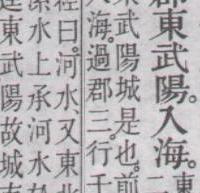 東武陽。入海。
東
二
東武陽城是也。前
入海。過郡三。行千
曰。河水又東北
水上承河水於
東武陽故城